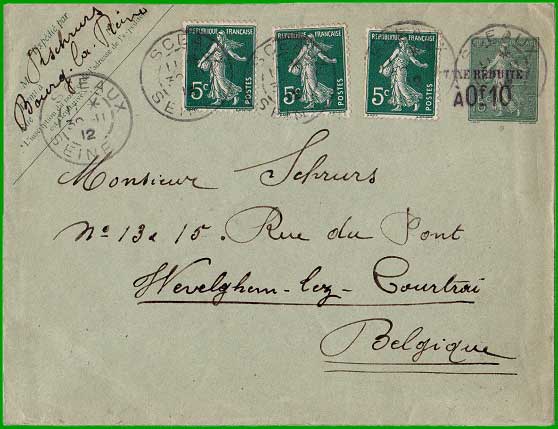 Expédié par
M Pschrurs
Bourg-la-Reine
RÉPUBLIQUE FRANÇAISE
5c
POSTES
RÉPUBLIQUE FRANÇAISE
5c
POSTES
RÉPUBLIQUE FRANÇAISE
5c
POSTES
TAXE RÉDUITE
À 0f10
SCEAUX
30 - 11
12
SEINE
Monsieur Schrurs
No 13 à 15. Rue du Pont
Wevelghem-lez-Courtrai
Belgique